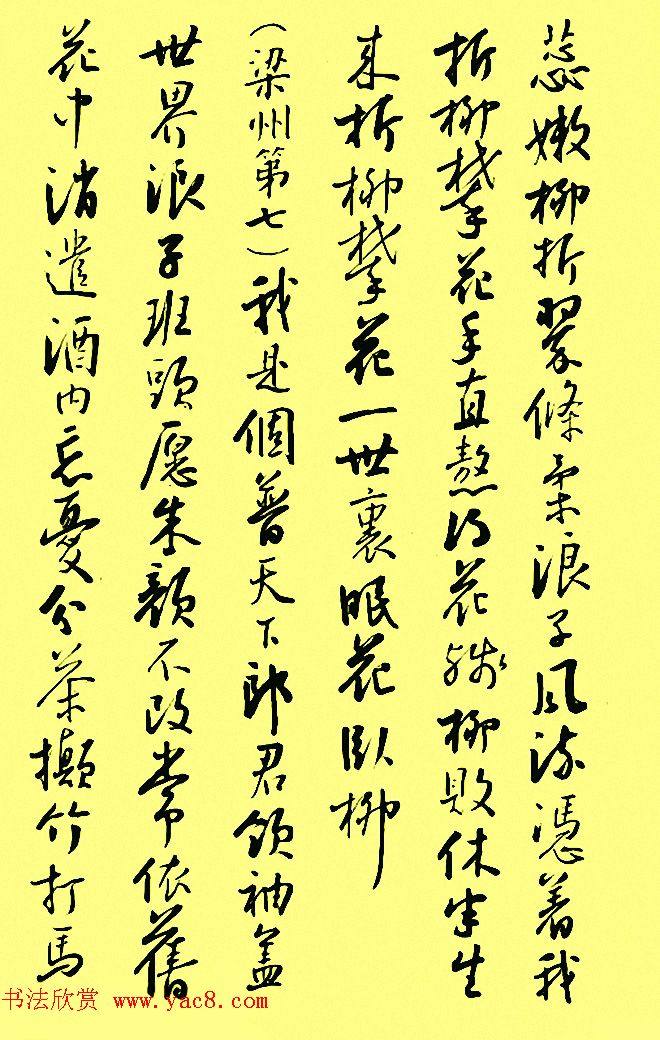 蕊嫩柳折翠條柔浪子風流憑着我
折柳攀花手直熬得花殘柳敗休半生
來折柳攀花一世裏眠花臥柳
（梁州第七）我是個普天下郎君領袖蓋
世界浪子班頭愿朱顏不改常依舊
花中消遣酒內忘憂分茶攧竹打馬
书法欣赏 www.yac8.com